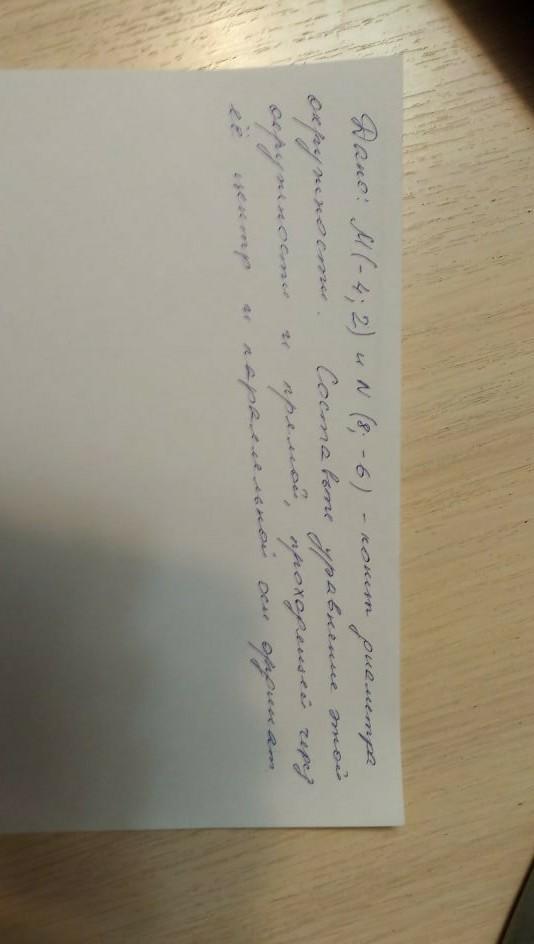 Дано: М(-4; 2) и N (8; -6) - концы диаметра
окружности. Составьте уравнение этой
окружности и прямой, проходящей через
её центр и параллельной оси ординат.